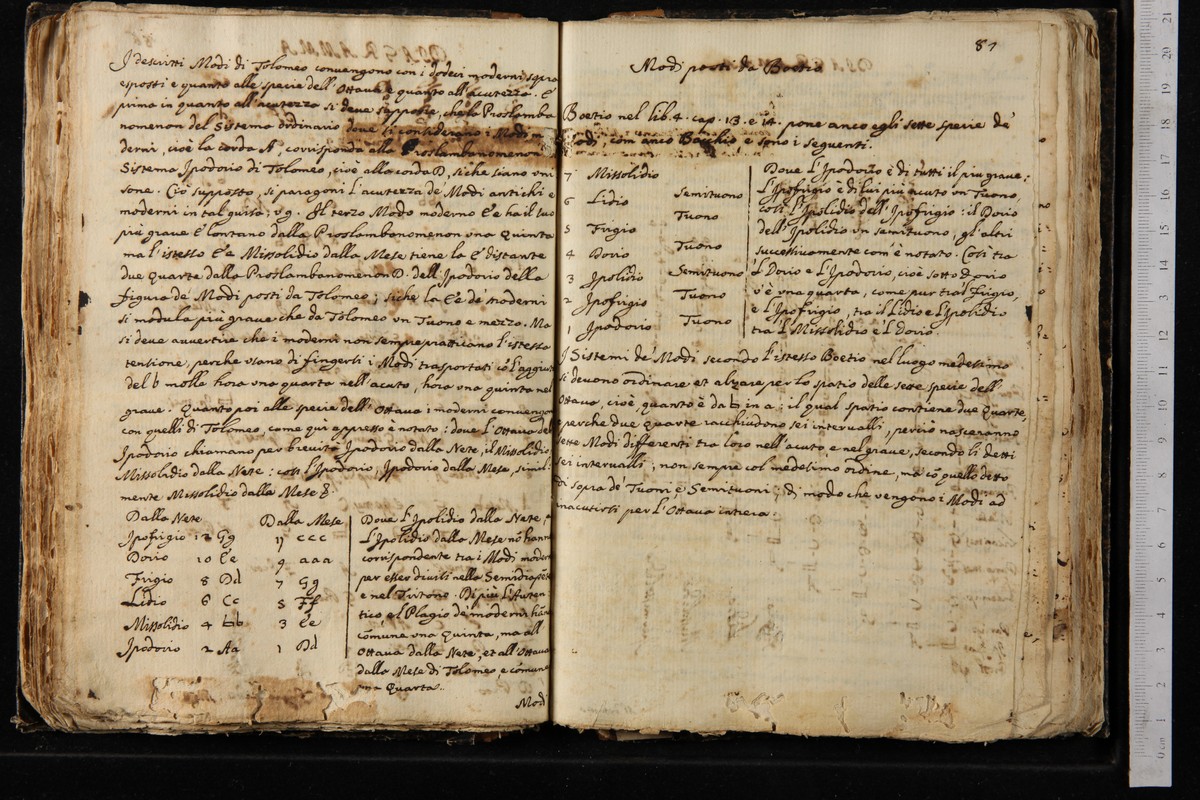 I descritti Modi di Tolomeo convengono con i dodeci moderni sopra
esposti e quanto alle specie dell'Ottava e quanto all'acutezza. E
prima in quanto all'acutezza si deve supporre, che la Proslamba
nomenon del Sistema ordinario dove si considerano i Modi mo
derni, cioè la corda A, corrisponda alla Proslambanomenon
Sistema Ipodorio di Tolomeo, cioè alla corda D, siche siano vni
sone. Ciò supposto, si paragoni l'acutezza de Modi antichi e
moderni in tal guisa; v.g. Il terzo Modo moderno E e ha il suo
più grave E lontano dalla Proslambanomenon vna quinta
ma l'istesso E e Missolidio dalla Mese tiene la E distante
due quarte dalla Proslambanomenon D. dell'Ipodorio della
figura de Modi posti da Tolomeo; siche la E e de moderni
si modula più grave che da Tolomeo vn Tuono e mezzo. Ma
si deve avvertire che i moderni non sempre pratticano l'istessa
tensione, perche vsano di fingersi i Modi trasportati cō l'aggiunt
del b molle hora vna quarta nell'acuto, hora vna quinta nel
grave. Quanto poi alle specie dell'Ottava i moderni convengon
con quelli di Tolomeo, come qui appresso è notato: dove l'Ottava del
Ipodorio chiamano per brevità Ipodorio dalla Nete, il Missolidio,
Missolidio dalla Nete: così l'Ipodorio, Ipodorio dalla Mese, simil=
mente Missolidio dalla Mese &
Dalla Nete Dalla Mese
Ipofrigio 12 Gg 11 ccc
Dorio 10 Ee 9 aaa
Frigio 8 Dd 7 Gg
Lidio 6 Cc 5 Ff
Missolidio 4 bb 3 Ee
Ipodorio 2 Aa 1 Dd
Dove l'Ipolidio dalla Nete, e
l'Ipolidio dalla Mese nō hanno
corrispondente tra i Modi moderni
per esser divisi nella Semidiapēte
e nel Tritone. Di più l'Auten=
tico, e'l Plagio de moderni hāno
cōmune vna Quinta, ma all'
Ottava dalla Nete, et all'Ottava
dalla Mese di Tolomeo, è cōmune
vna Quarta.
Modi
81
Modi posti da Boetio
Boetio nel lib. 4. cap. 13. e 14. pone anco egli sette specie de'
Modi, com'anco Bacchio e sono i seguenti.
7 Missolidio
Semituono
6 Lidio
Tuono
5 Frigio
Tuono
4 Dorio
Semituono
3 Ipolidio
Tuono
2 Ipofrigio
Tuono
1 Ipodorio
Dove l'Ipodorio è di tutti il più grave;
l'Ipofrigio è di lui più acuto vn Tuono,
così l'Ipolidio dell'Ipofrigio: il Dorio
dell'Ipolidio vn semituono, gl'altri
successivamente com'è notato. Così tra
'l Dorio e l'Ipodorio, cioè sotto Dorio
v'è vna quarta, come pur tra'l Frigio,
e l'Ipofrigio, tra il Lidio e l'Ipolidio
tra 'l Missolidio e'l Dorio.
I Sistemi de' Modi secondo l'istesso Boetio nel luogo medesimo
si devono ordinare et alzare per lo spatio delle sette specie dell'
Ottava, cioè, quanto è da b in a: il qual spatio contiene due Quarte,
perche due quarte racchiudono sei intervalli, perciò nasceranno
sette Modi differenti tra loro nell'acuto e nel grave, secondo li detti
sei intervalli; non sempre col medesimo ordine, ma cō quello detto
di sopra de' Tuoni e Semituoni; di modo che vengono i Modi ad
inacutirsi per l'Ottava intiera.